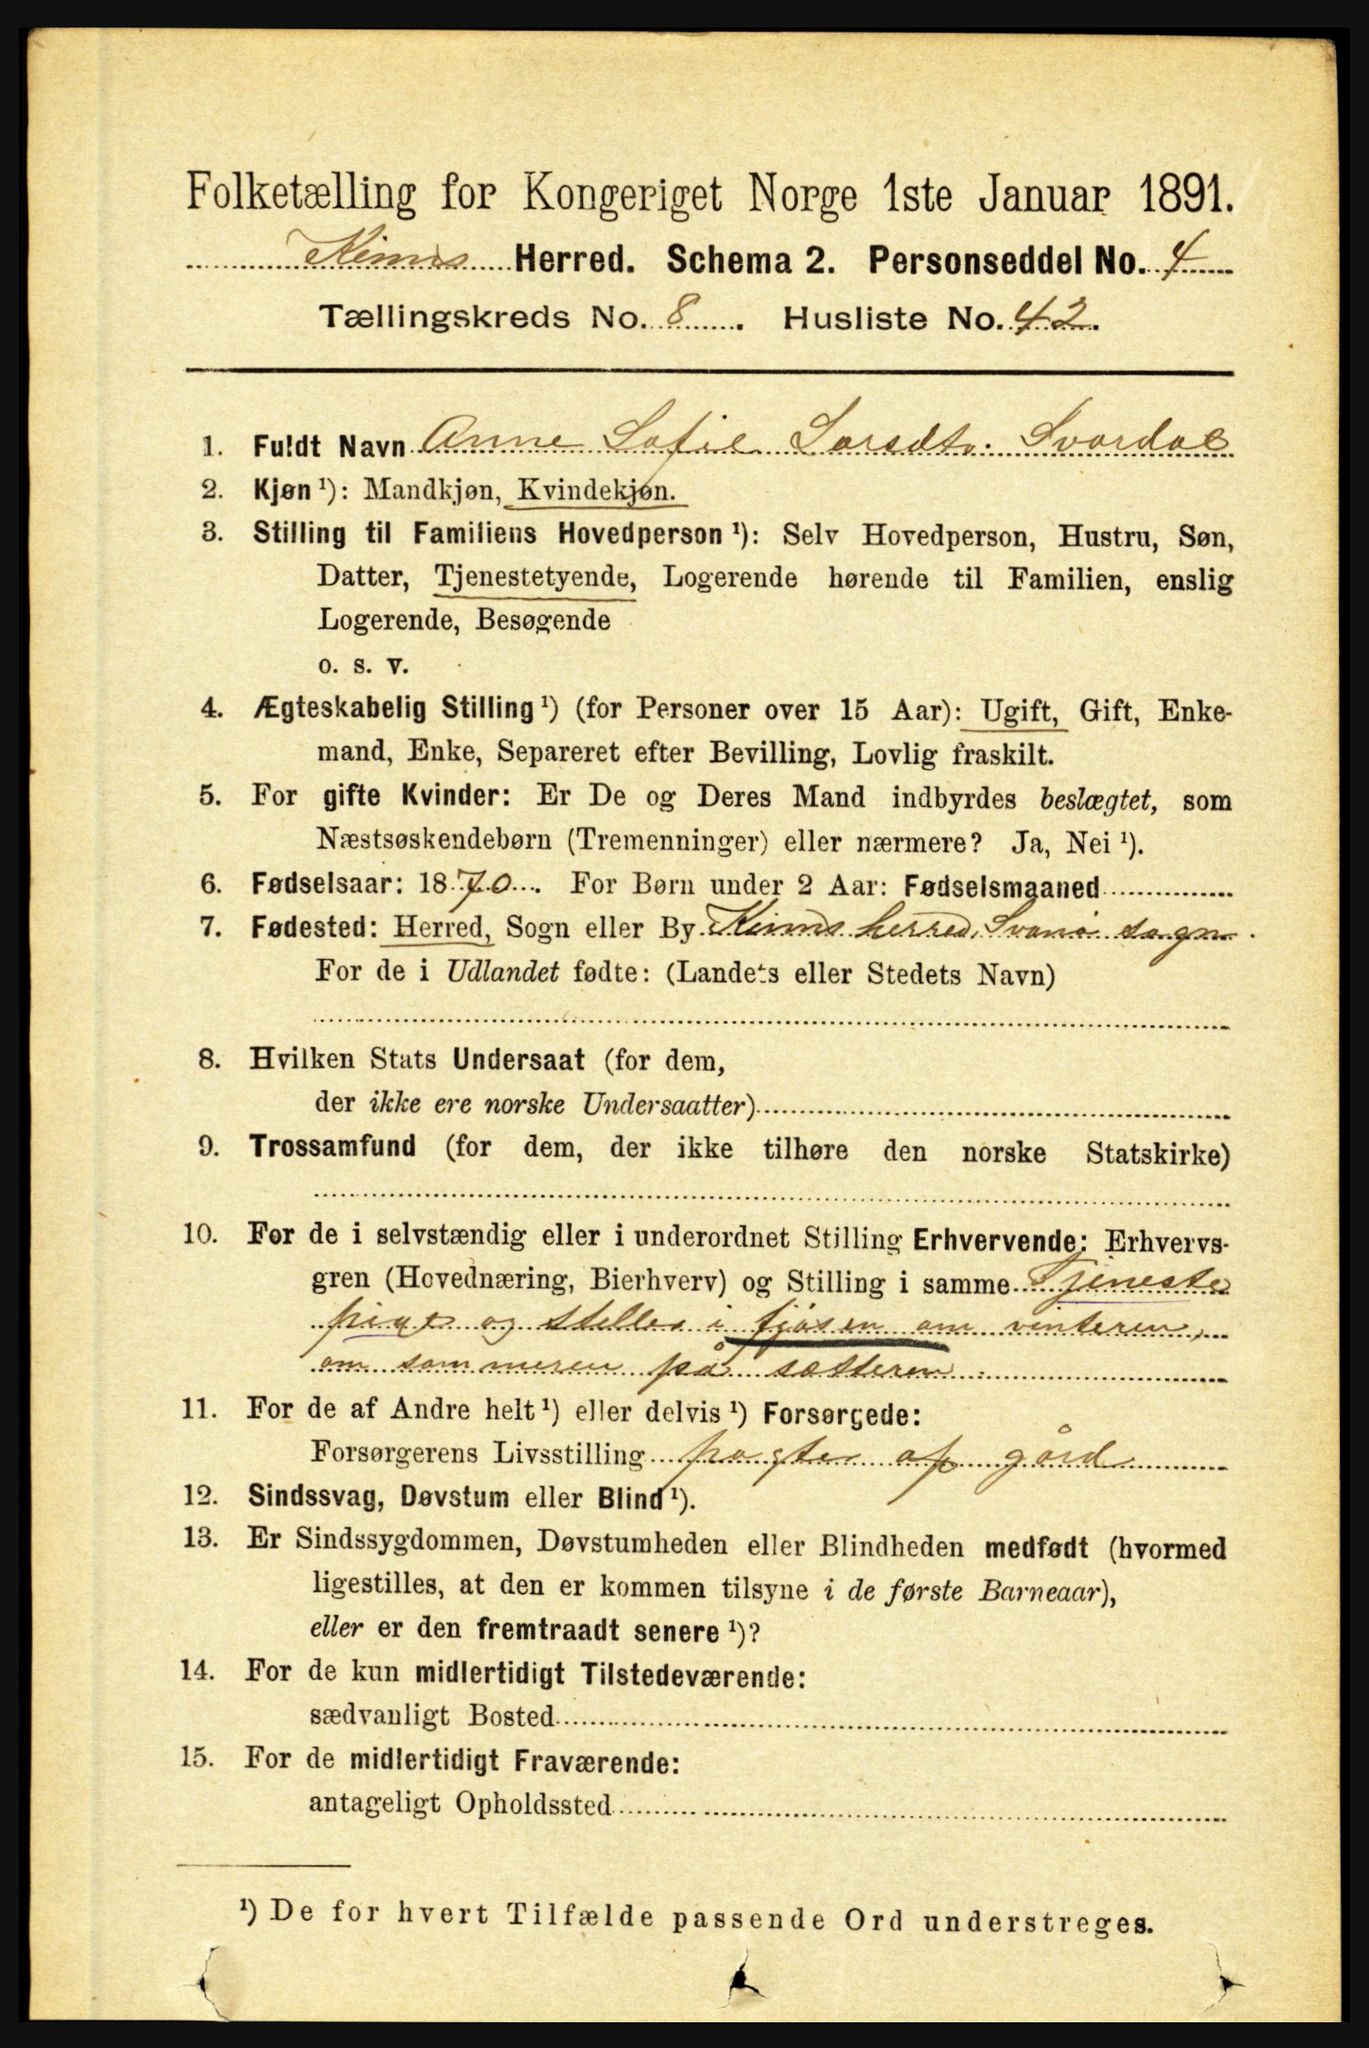 Folketælling for Kongeriget Norge 1ste Januar 1891.
Kinns Herred. Schema 2. Personseddel No. 4
Tællingskreds No. 8. Husliste No. 42.
1. Fuldt Navn Anne Sofie Larsdtr. Svardal
2. Kjøn ¹): Mandkjøn, Kvindekjøn.
3. Stilling til Familiens Hovedperson ¹): Selv Hovedperson, Hustru, Søn,
Datter, Tjenestetyende, Logerende hørende til Familien, enslig
Logerende, Besøgende
o. s. v.
4. Ægteskabelig Stilling ¹) (for Personer over 15 Aar): Ugift, Gift, Enke-
mand, Enke, Separeret efter Bevilling, Lovlig fraskilt.
5. For gifte Kvinder: Er De og Deres Mand indbyrdes beslægtet, som
Næstsøskendebørn (Tremenninger) eller nærmere? Ja, Nei ¹).
6. Fødselsaar: 1870. For Børn under 2 Aar: Fødselsmaaned
7. Fødested: Herred, Sogn eller By Kinns herred, Svanø sogn.
For de i Udlandet fødte: (Landets eller Stedets Navn)
8. Hvilken Stats Undersaat (for dem,
der ikke ere norske Undersaatter)
9. Trossamfund (for dem, der ikke tilhøre den norske Statskirke)
10. For de i selvstændig eller i underordnet Stilling Erhvervende: Erhvervs-
gren (Hovednæring, Bierhverv) og Stilling i samme Tjeneste
pige og steller i fjøsen om vinteren,
om sommeren på sætteren.
11. For de af Andre helt ¹) eller delvis ¹) Forsørgede:
Forsørgerens Livsstilling pagter af gård
12. Sindssvag, Døvstum eller Blind ¹).
13. Er Sindssygdommen, Døvstumheden eller Blindheden medfødt (hvormed
ligestilles, at den er kommen tilsyne i de første Barneaar),
eller er den fremtraadt senere ¹)?
14. For de kun midlertidigt Tilstedeværende:
sædvanligt Bosted
15. For de midlertidigt Fraværende:
antageligt Opholdssted
¹) De for hvert Tilfælde passende Ord understreges.